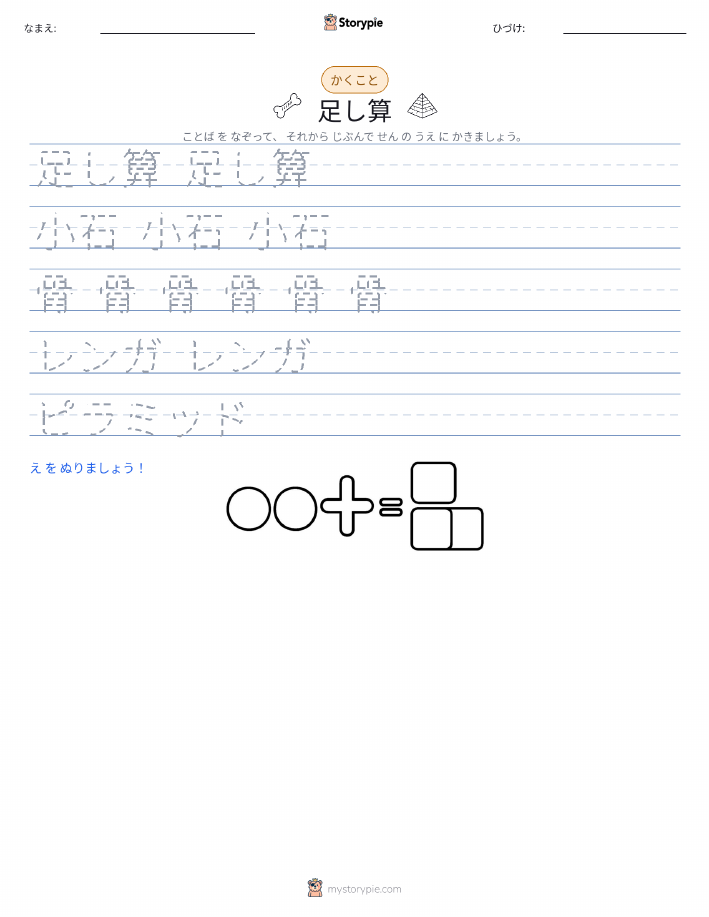 なまえ:
Storypie
ひづけ:
かくこと
足し算
ことば を なぞって、 それから じぶんで せん の うえ に かきましょう。
足し算 足し算
小石 小石 小石
骨 骨 骨 骨 骨 骨
レンガ レンガ
ピラミッド
え を ぬりましょう！
mystorypie.com